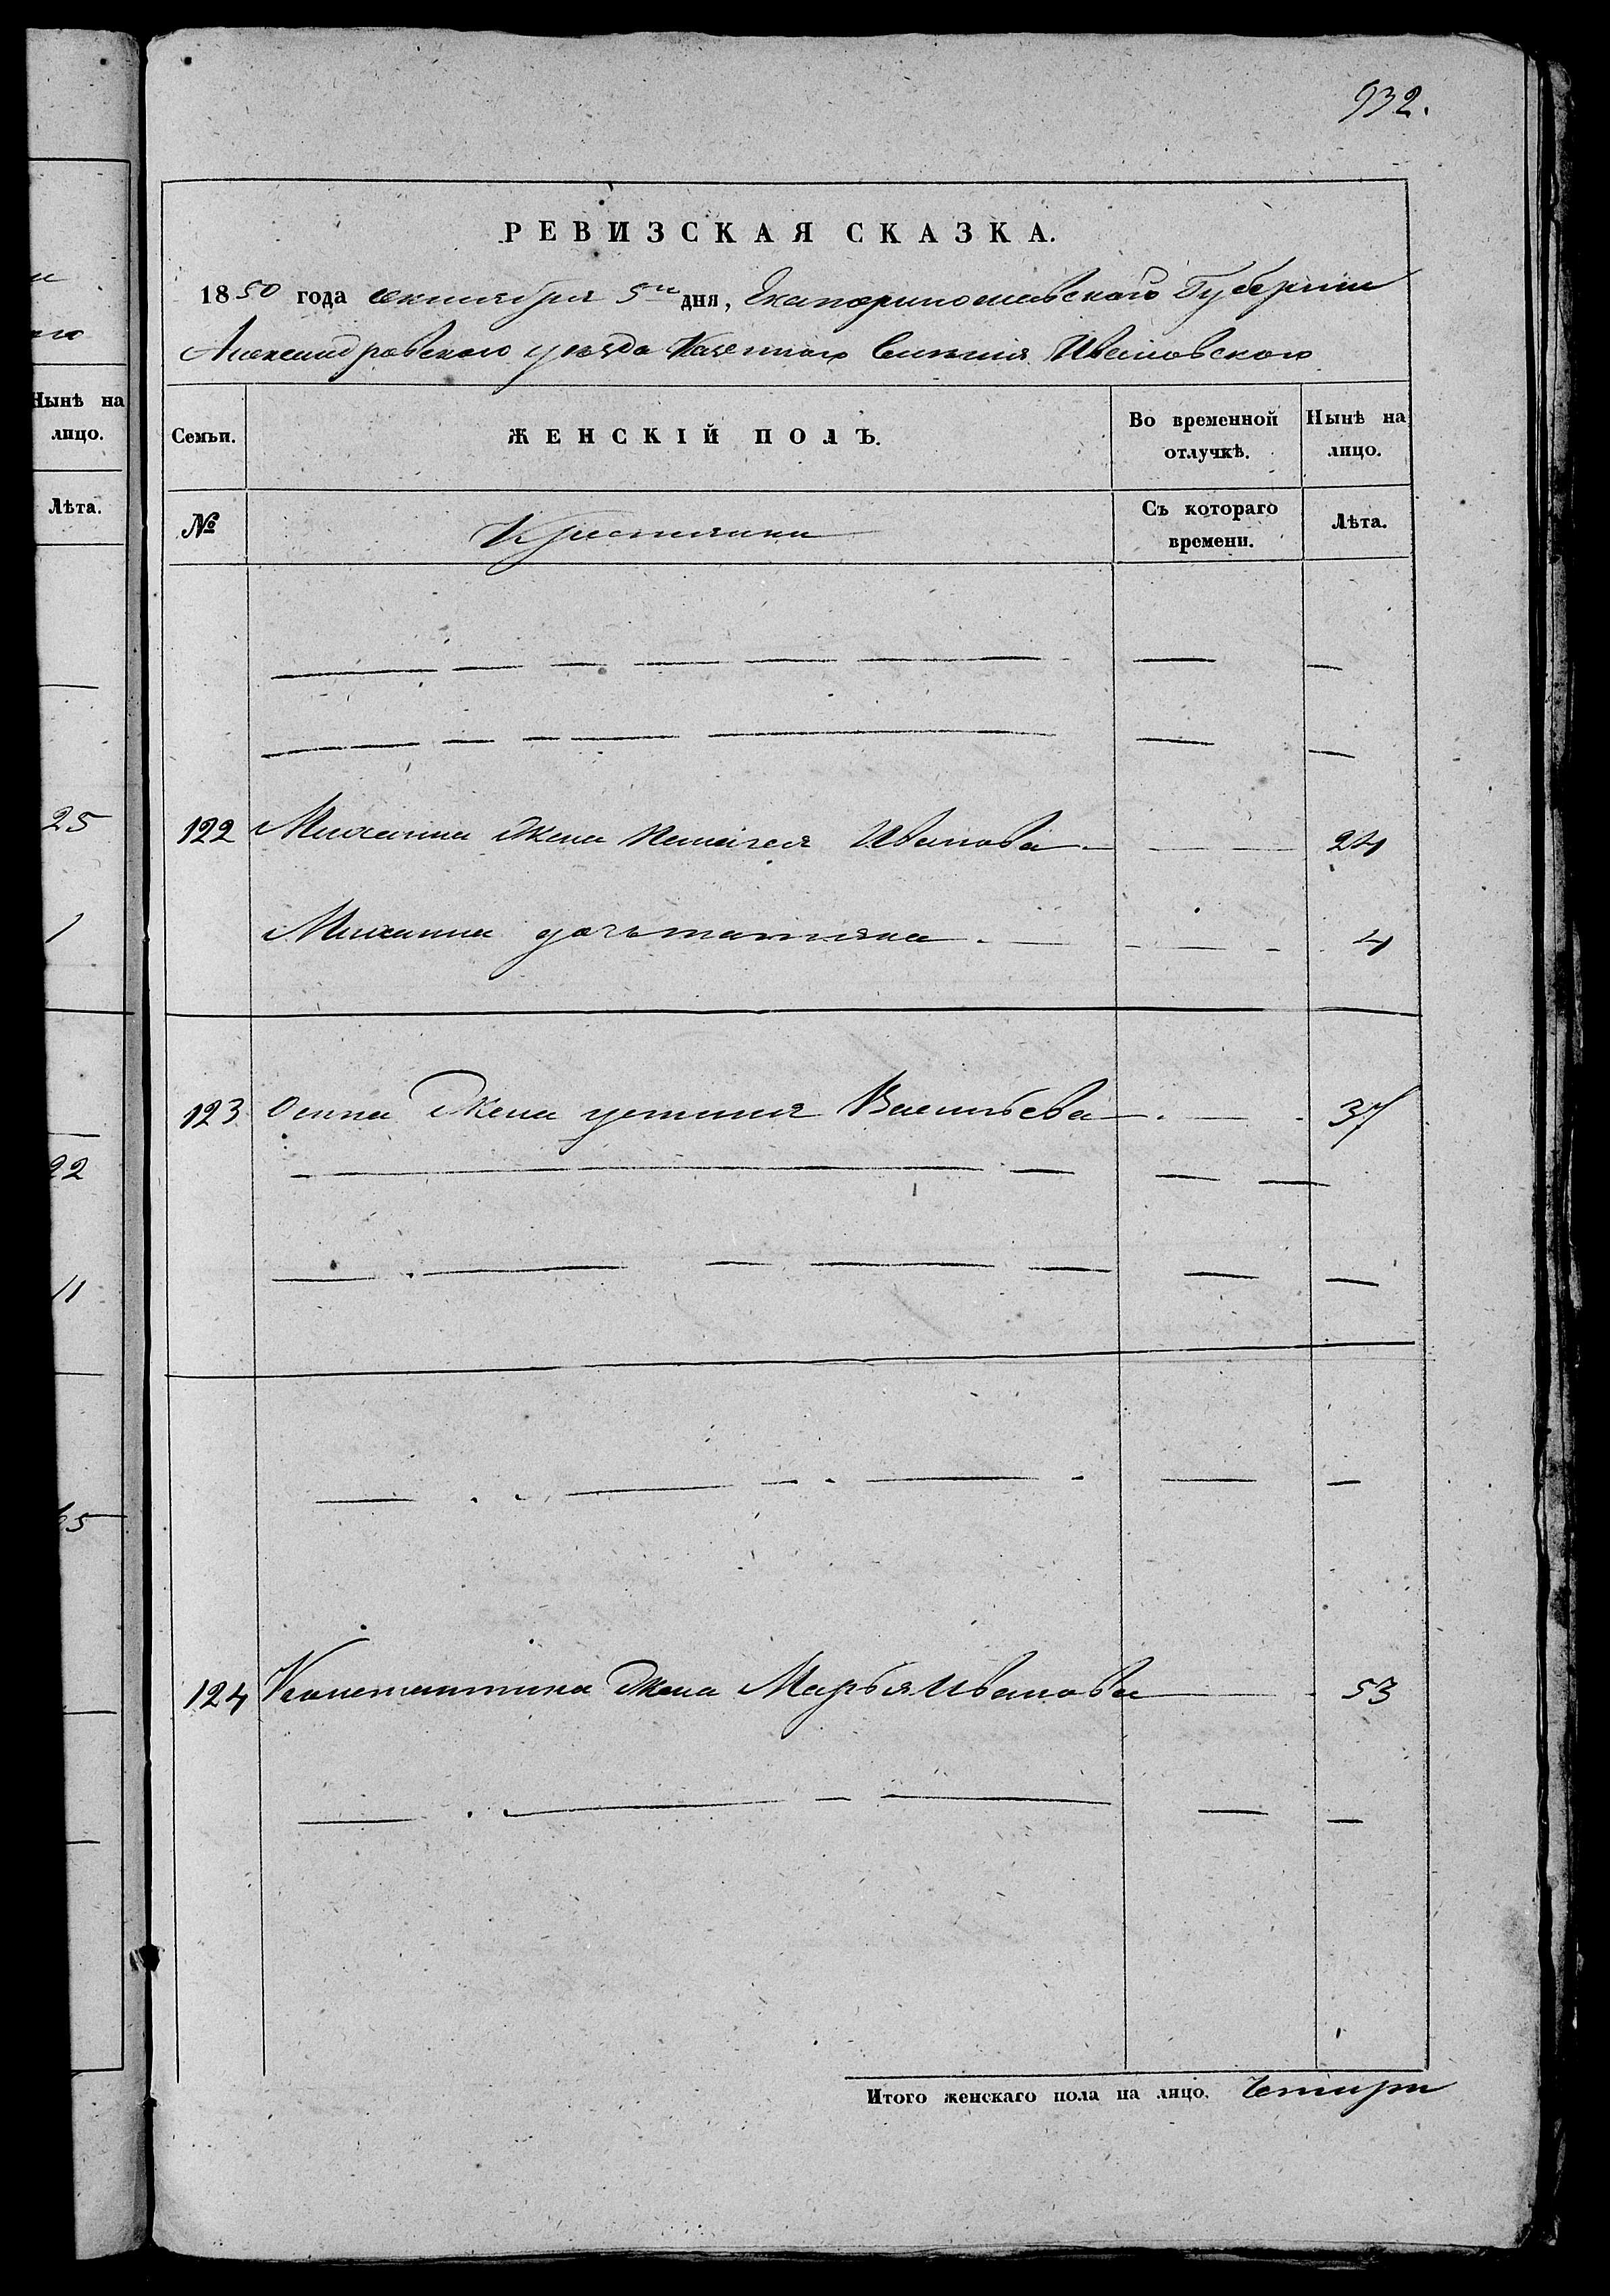 932.
РЕВИЗСКАЯ СКАЗКА.
1850 года октября 5го дня, Екатеринославской Губернии
Александровского уезда Казенного Селения Ивановского
Нынѣ на лицо.
Лѣта.
25
1
22
11
Семьи. ЖЕНСКІЙ ПОЛЪ. Во временной отлучкѣ. Нынѣ на лицо.
№ Крестьянки Съ котораго времени. Лѣта.
122 Михаила жена Пелагея Иванова 24
Михаила дочь татияна 4
123 Осипа жена устиния Васильева 37
124 Константина жена Марья Иванова 53
Итого женскаго пола на лицо. Четыри